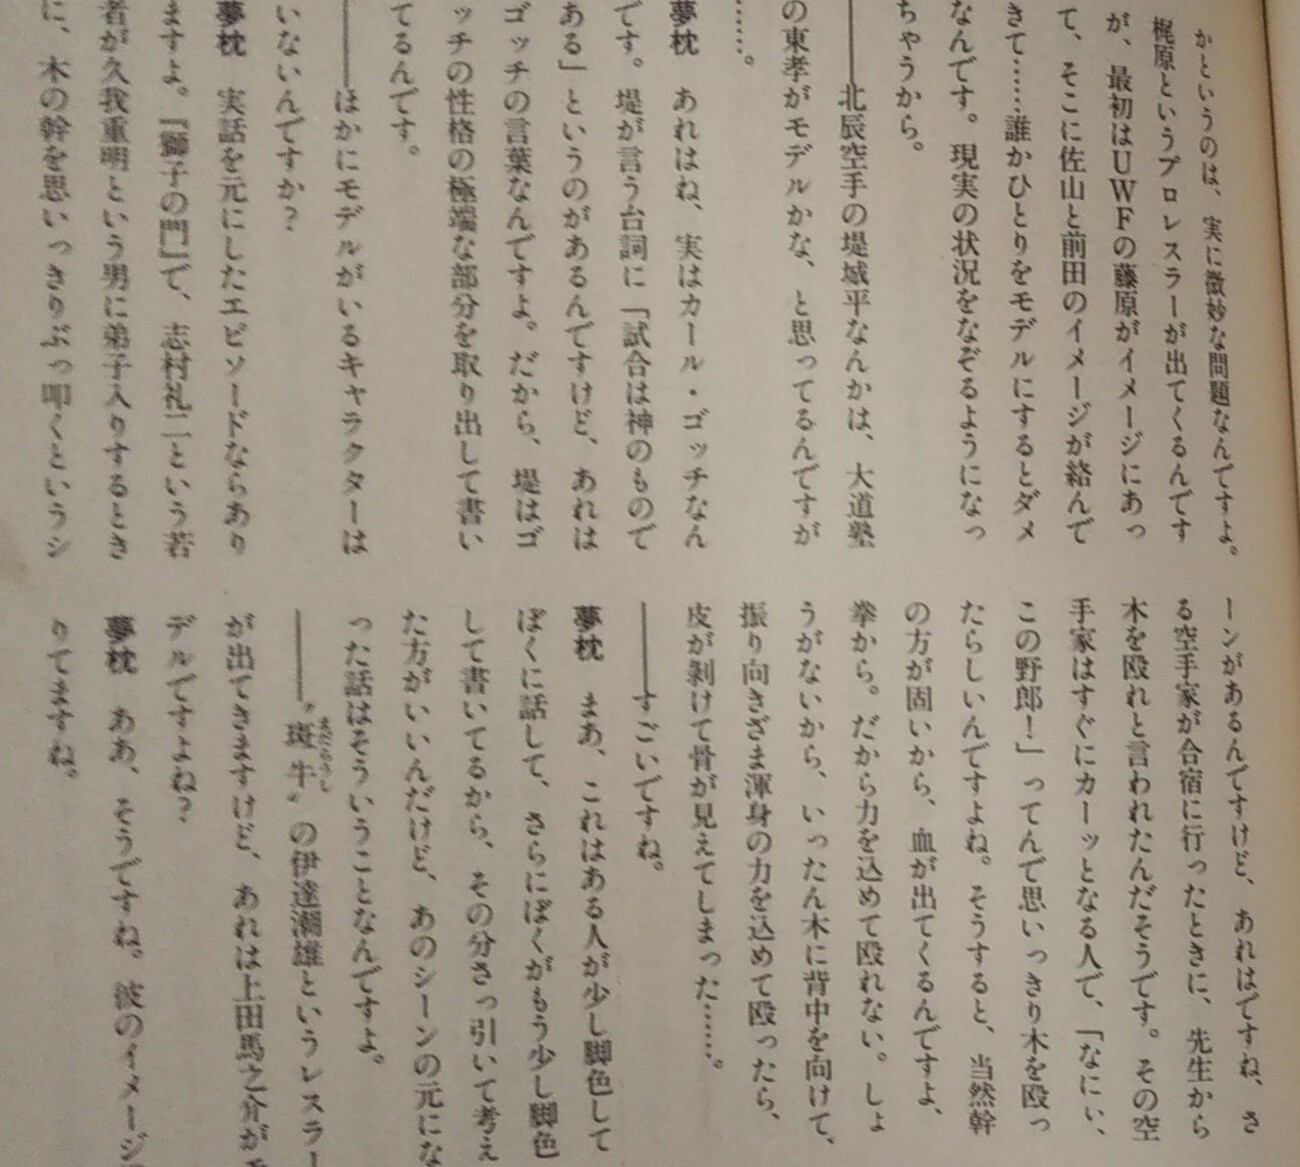 かというのは、実に微妙な問題なんですよ。
梶原というプロレスラーが出てくるんです
が、最初はUWFの藤原がイメージにあっ
て、そこに佐山と前田のイメージが絡んで
きて……誰かひとりをモデルにするとダメ
なんです。現実の状況をなぞるようになっ
ちゃうから。
――北辰空手の堤城平なんかは、大道塾
の東孝がモデルかな、と思ってるんですが
……。
夢枕　あれはね、実はカール・ゴッチなん
です。堤が言う台詞に「試合は神のもので
ある」というのがあるんですけど、あれは
ゴッチの言葉なんですよ。だから、堤はゴ
ッチの性格の極端な部分を取り出して書い
てるんです。
――ほかにモデルがいるキャラクターは
いないんですか？
夢枕　実話を元にしたエピソードならあり
ますよ。『獅子の門』で、志村礼二という若
者が久我重明という男に弟子入りするとき
に、木の幹を思いっきりぶっ叩くというシ
ーンがあるんですけど、あれはですね、さ
る空手家が合宿に行ったときに、先生から
木を殴れと言われたんだそうです。その空
手家はすぐにカーッとなる人で、「なにぃ、
この野郎！」ってんで思いっきり木を殴っ
たらしいんですよね。そうすると、当然幹
の方が固いから、血が出てくるんですよ、
拳から。だから力を込めて殴れない。しょ
うがないから、いったん木に背中を向けて、
振り向きざま渾身の力を込めて殴ったら、
皮が剥けて骨が見えてしまった……。
――すごいですね。
夢枕　まあ、これはある人が少し脚色して
ぼくに話して、さらにぼくがもう少し脚色
して書いてるから、その分さっ引いて考え
た方がいいんだけど、あのシーンの元にな
った話はそういうことなんですよ。
――〝斑牛〟の伊達潮雄というレスラー
まだらうし
が出てきますけど、あれは上田馬之介がモ
デルですよね？
夢枕　ああ、そうですね。彼のイメージ
りてますね。